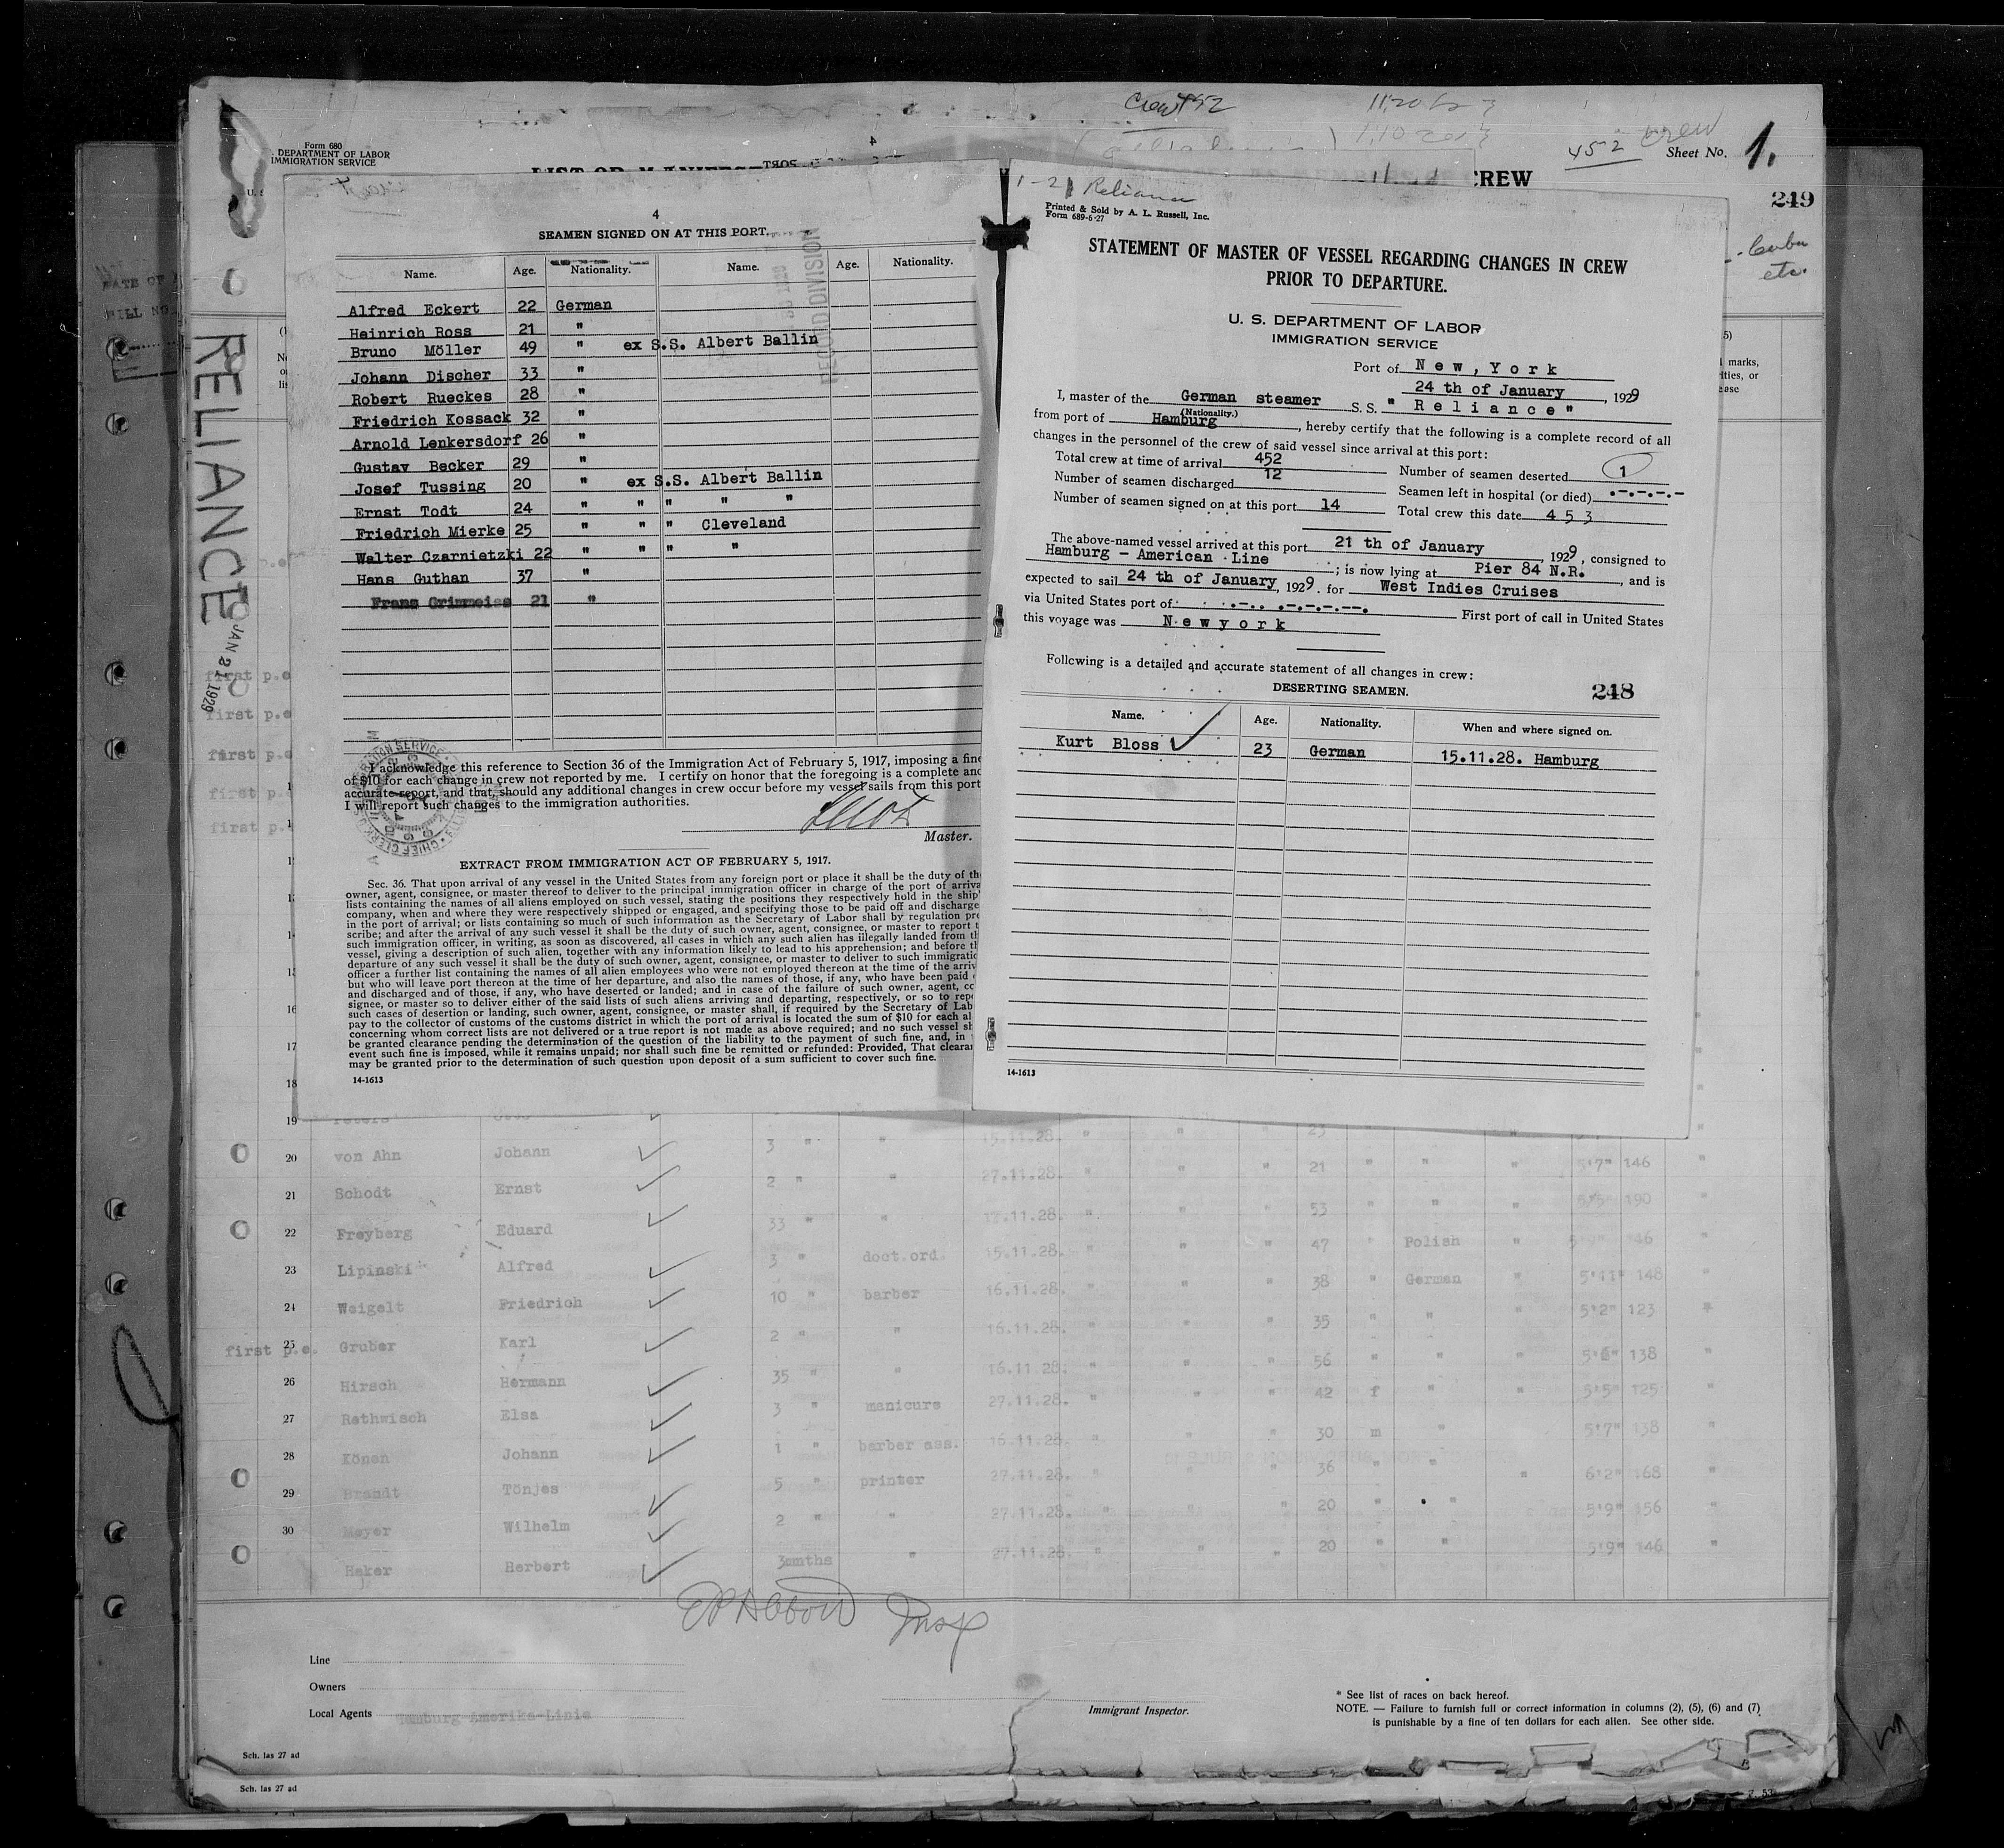 Crew 452
452 Crew
Form 680
. DEPARTMENT OF LABOR
IMMIGRATION SERVICE
Sheet No. 1.
CREW
249
Cuba
etc.
RELIANCE
JAN 21 1929
4
SEAMEN SIGNED ON AT THIS PORT.
Name. Age. Nationality. Name. Age. Nationality.
Alfred Eckert 22 German
Heinrich Ross 21 "
Bruno Möller 49 " ex S.S. Albert Ballin
Johann Discher 33 "
Robert Rueckes 28 "
Friedrich Kossack 32 "
Arnold Lenkersdorf 26 "
Gustav Becker 29 "
Josef Tussing 20 " ex S.S. Albert Ballin
Ernst Todt 24 " " " " "
Friedrich Mierke 25 " " " Cleveland
Walter Czarnietzki 22 " " " "
Hans Guthan 37 "
Franz Grimmeiss 21 "
RECORD DIVISION
I acknowledge this reference to Section 36 of the Immigration Act of February 5, 1917, imposing a fine
of $10 for each change in crew not reported by me. I certify on honor that the foregoing is a complete and
accurate report, and that, should any additional changes in crew occur before my vessel sails from this port
I will report such changes to the immigration authorities.
Master.
EXTRACT FROM IMMIGRATION ACT OF FEBRUARY 5, 1917.
Sec. 36. That upon arrival of any vessel in the United States from any foreign port or place it shall be the duty of th
owner, agent, consignee, or master thereof to deliver to the principal immigration officer in charge of the port of arriva
lists containing the names of all aliens employed on such vessel, stating the positions they respectively hold in the ship'
company, when and where they were respectively shipped or engaged, and specifying those to be paid off and discharge
in the port of arrival; or lists containing so much of such information as the Secretary of Labor shall by regulation pre
scribe; and after the arrival of any such vessel it shall be the duty of such owner, agent, consignee, or master to report t
such immigration officer, in writing, as soon as discovered, all cases in which any such alien has illegally landed from th
vessel, giving a description of such alien, together with any information likely to lead to his apprehension; and before th
departure of any such vessel it shall be the duty of such owner, agent, consignee, or master to deliver to such immigratio
officer a further list containing the names of all alien employees who were not employed thereon at the time of the arriv
but who will leave port thereon at the time of her departure, and also the names of those, if any, who have been paid
and discharged and of those, if any, who have deserted or landed; and in case of the failure of such owner, agent, co
signee, or master so to deliver either of the said lists of such aliens arriving and departing, respectively, or so to repo
such cases of desertion or landing, such owner, agent, consignee, or master shall, if required by the Secretary of Lab
pay to the collector of customs of the customs district in which the port of arrival is located the sum of $10 for each al
concerning whom correct lists are not delivered or a true report is not made as above required; and no such vessel sh
be granted clearance pending the determination of the question of the liability to the payment of such fine, and, in
event such fine is imposed, while it remains unpaid; nor shall such fine be remitted or refunded: Provided, That clearan
may be granted prior to the determination of such question upon deposit of a sum sufficient to cover such fine.
14-1613
Printed & Sold by A. L. Russell, Inc.
Form 689-6-27
STATEMENT OF MASTER OF VESSEL REGARDING CHANGES IN CREW
PRIOR TO DEPARTURE.
U. S. DEPARTMENT OF LABOR
IMMIGRATION SERVICE
Port of New, York
24 th of January, 1929
I, master of the German steamer S.S. "Reliance"
(Nationality.)
from port of Hamburg, hereby certify that the following is a complete record of all
changes in the personnel of the crew of said vessel since arrival at this port:
Total crew at time of arrival 452 Number of seamen deserted 1
Number of seamen discharged 12 Seamen left in hospital (or died) .-.-.-.-
Number of seamen signed on at this port 14 Total crew this date 453
The above-named vessel arrived at this port 21 th of January, 1929, consigned to
Hamburg - American Line; is now lying at Pier 84 N.R., and is
expected to sail 24 th of January, 1929. for West Indies Cruises
via United States port of First port of call in United States
this voyage was Newyork
Following is a detailed and accurate statement of all changes in crew:
DESERTING SEAMEN. 248
Name. Age. Nationality. When and where signed on.
Kurt Bloss 23 German 15.11.28. Hamburg
14-1613
20 von Ahn Johann 3 " " 15.11.28. " " " 21 " " " 5'7" 146 "
21 Schodt Ernst 2 " " 27.11.28. " " " 53 " " " 5'5" 190
22 Freyberg Eduard 33 " " 11.28. " " " 47 " Polish " 146 "
23 Lipinski Alfred 3 " doct.ord. 15.11.28. " " " 38 " German " 5'11" 148 "
24 Weigelt Friedrich 10 " barber 16.11.28. " " " 35 " " " 5'2" 123 "
first p.e. 25 Gruber Karl 2 " " 16.11.28. " " " 56 " " " 5'6" 138 "
26 Hirsch Hermann 35 " " 16.11.28. " " " 42 f " " 5'5" 125 "
27 Rathwisch Elsa 3 " manicure 27.11.28. " " " 30 m " 5'7" 138
28 Könen Johann 1 " barber ass. 16.11.28. " " " 36 " " " 6'2" 168 "
29 Brandt Tönjes 5 " printer 27.11.28. " " " 20 " " 5'9" 156 "
30 Meyer Wilhelm 2 " " 27.11.28. " " " 20 " " 5'9" 146 "
Haker Herbert 3mnths " 27.11.28. " " "
E P Abbott Insp
Line
Owners
Local Agents Hamburg Amerika-Linie
Immigrant Inspector.
* See list of races on back hereof.
NOTE. — Failure to furnish full or correct information in columns (2), (5), (6) and (7)
is punishable by a fine of ten dollars for each alien. See other side.
Sch. las 27 ad
Sch. las 27 ad